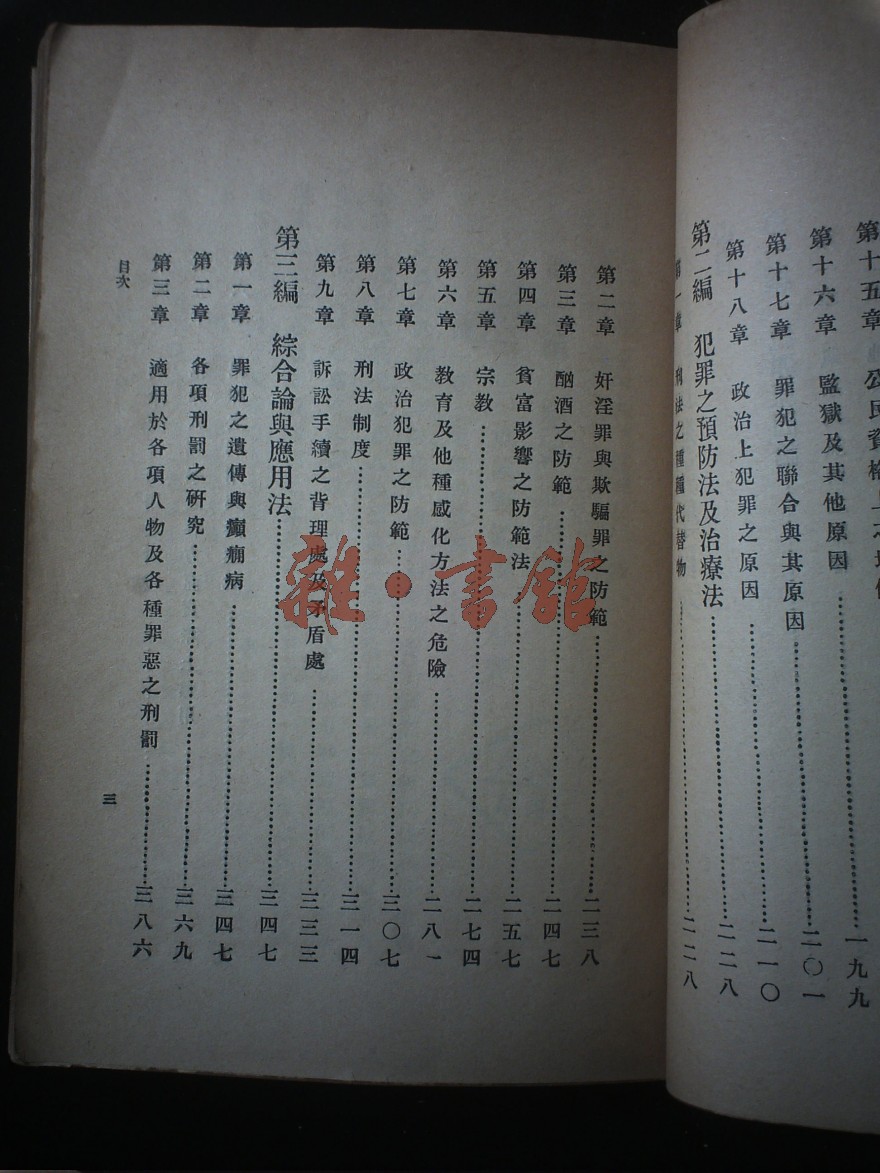 第十五章 公民資格上之 一九九
第十六章 監獄及其他原因 二〇一
第十七章 罪犯之聯合與其原因 二一〇
第十八章 政治上犯罪之原因
第二編 犯罪之預防法及治療法 二二八
第一章 刑法之種種代替物 二二八
第二章 奸淫罪與欺騙罪之防範 二三八
第三章 酗酒之防範 二四七
第四章 貧富影響之防範法 二五七
第五章 宗教 二七四
第六章 教育及他種感化方法之危險 二八一
第七章 政治犯罪之防範 三〇七
第八章 刑法制度 三一四
第九章 訴訟手續之背理處及矛盾處 三三三
第三編 綜合論與應用法 三四七
第一章 罪犯之遺傳與癲癇病 三四七
第二章 各項刑罰之研究 三六九
第三章 適用於各項人物及各種罪惡之刑罰 三八六
目次
三
雜·書館